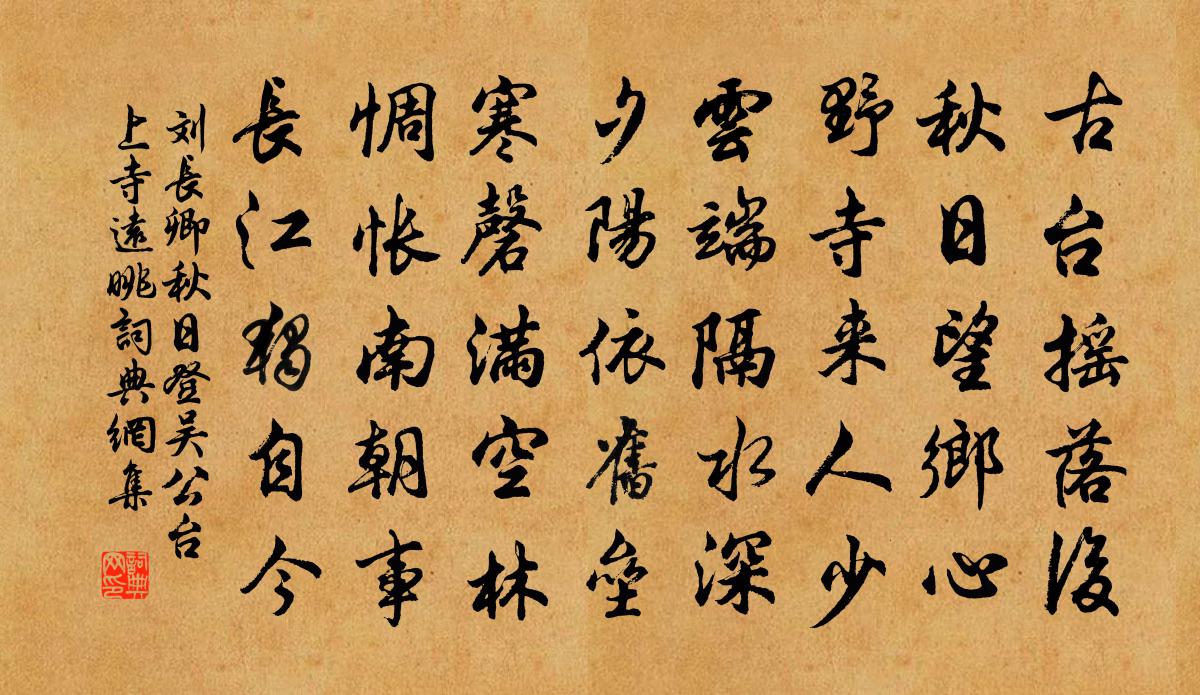 古台摇落後
秋日望鄉心
野寺来人少
雲端隔水深
夕陽依舊壘
寒磬滿空林
惆怅南朝事
長江獨自今
刘長卿秋日登吴公台
上寺遠眺詞典網集
詞典
网印